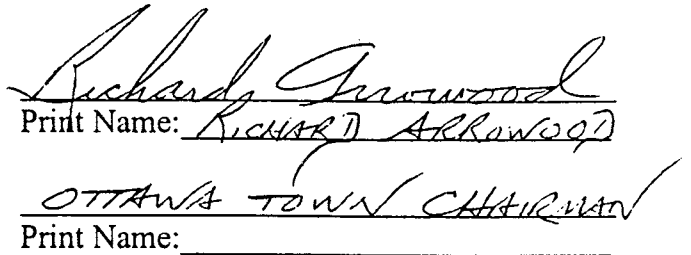 Richard Arrowood
Print Name: RICHARD ARROWOOD
OTTAWA TOWN CHAIRMAN
Print Name: